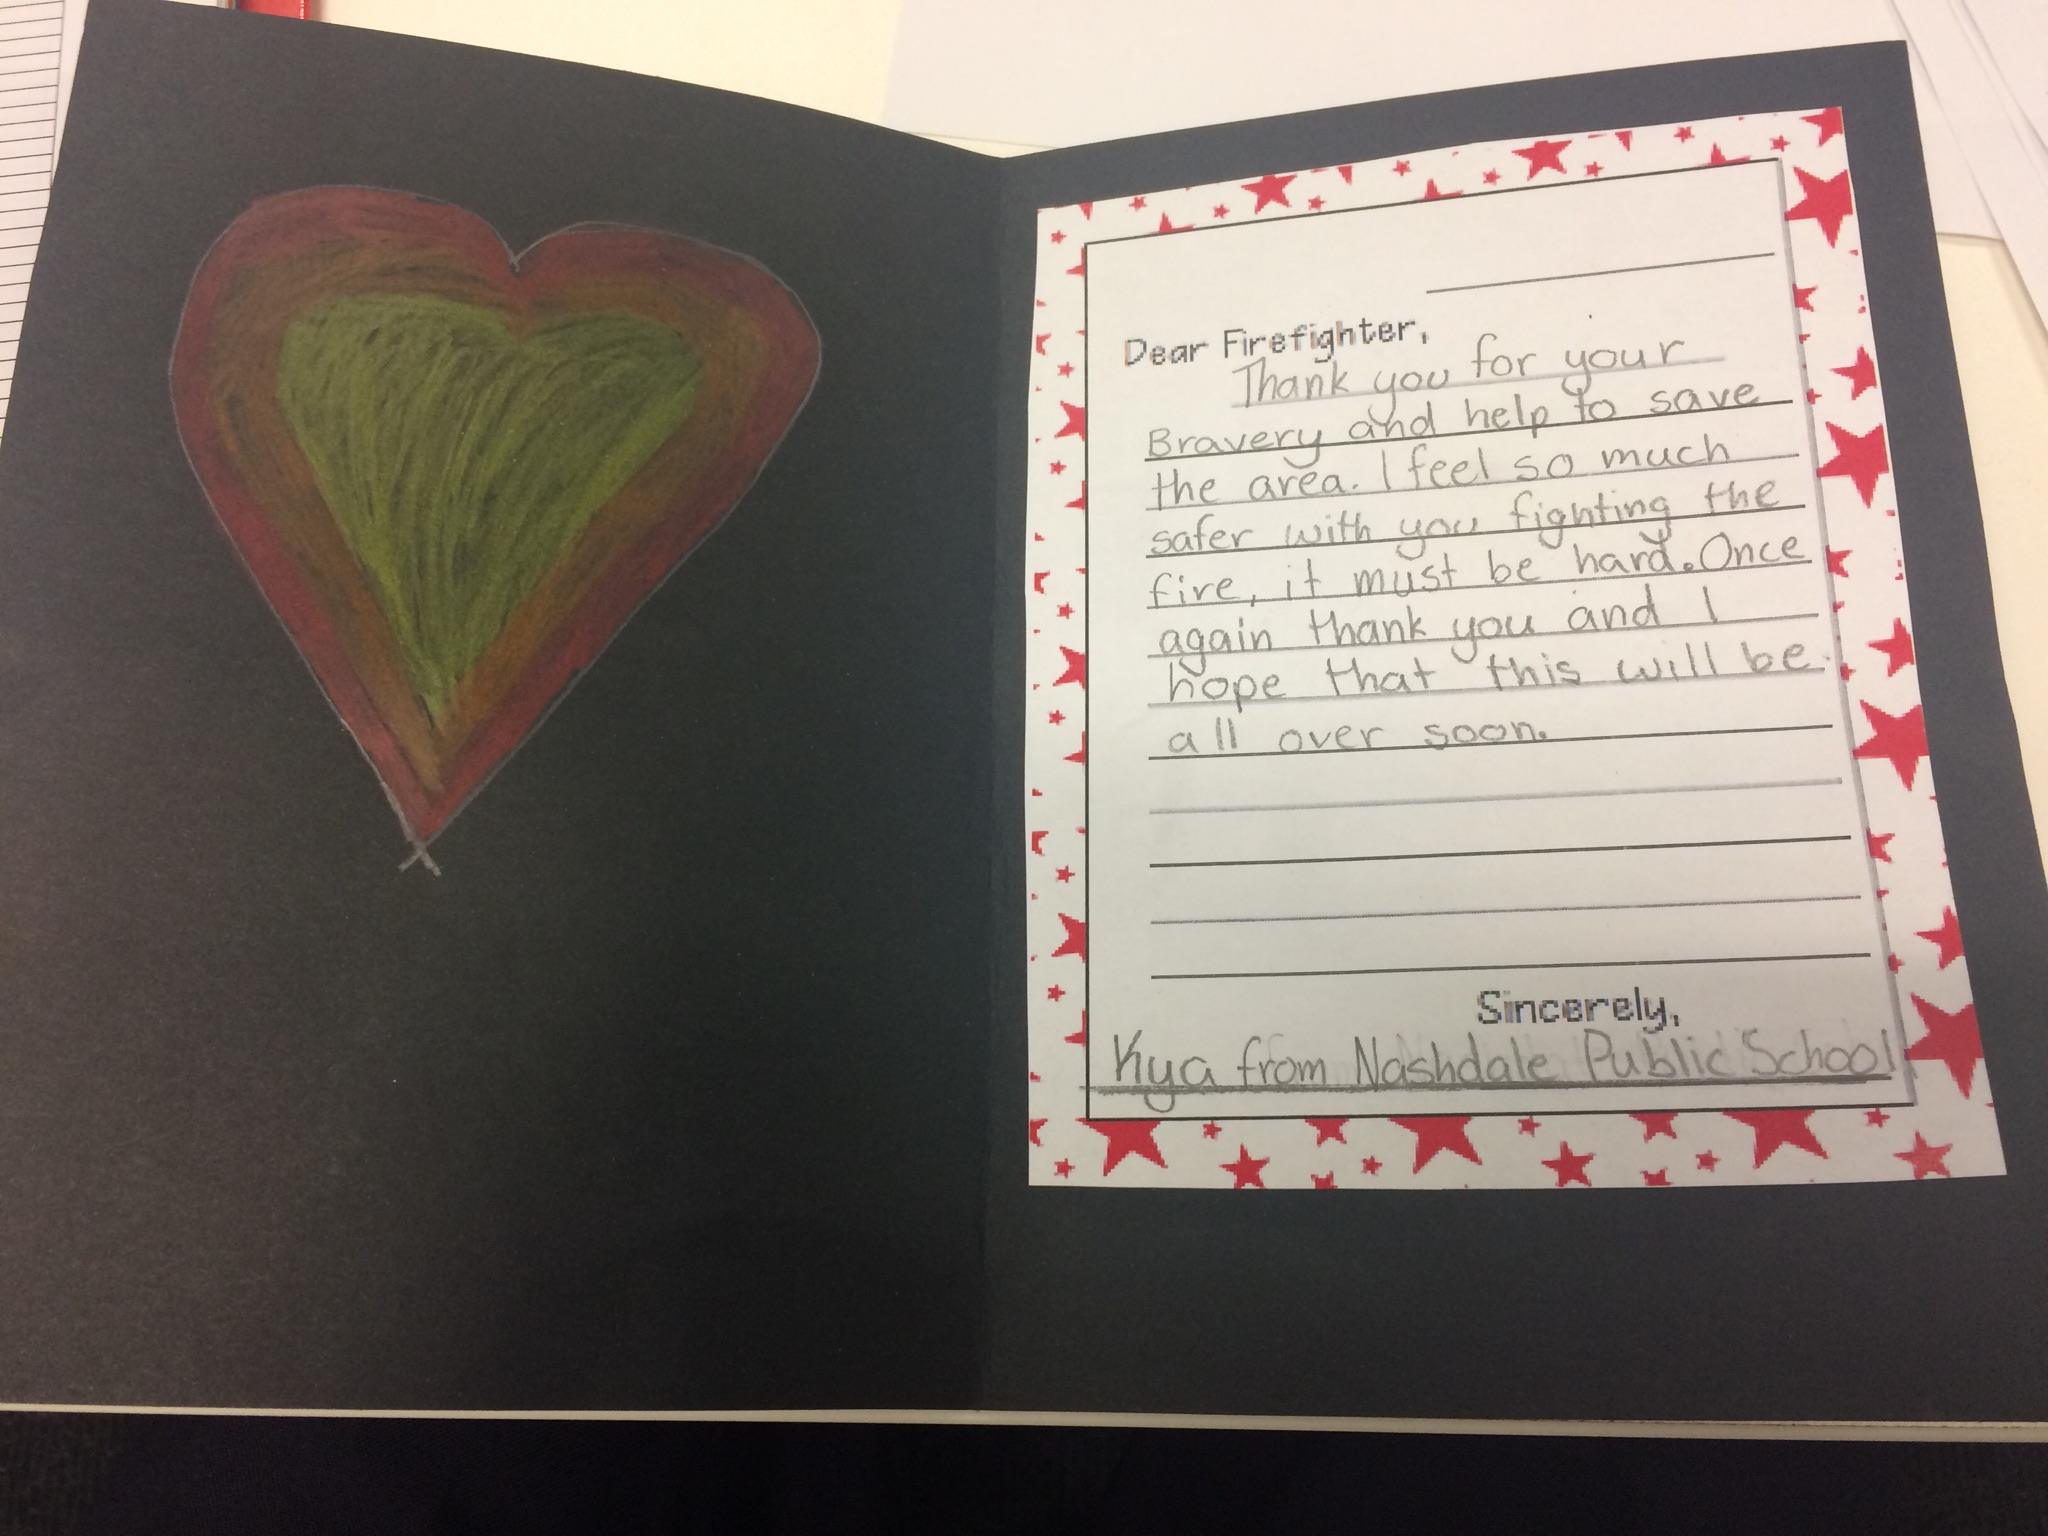 Dear Firefighter,
Thank you for your
Bravery and help to save
the area. I feel so much
safer with you fighting the
fire, it must be hard. Once
again thank you and I
hope that this will be
all over soon.
Sincerely,
Kya from Nashdale Public School